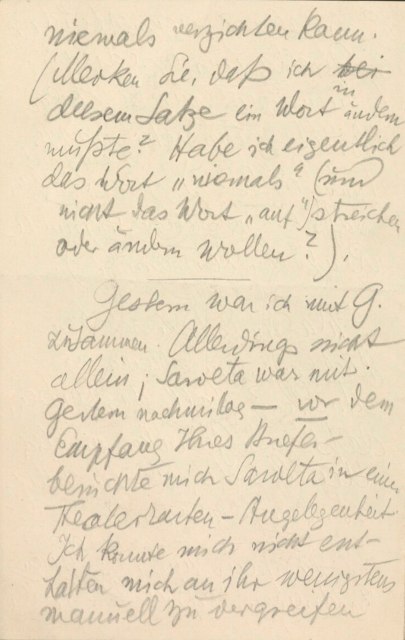 niemals verzichten kann.
(Merken Sie, daß ich bei
in
diesem Satze ein Wort ändern
mußte? Habe ich eigentlich
das Wort „niemals“ (und
nicht das Wort „auf“) streichen
oder ändern wollen?).
Gestern war ich mit G.
zusammen. Allerdings nicht
allein; Sarolta war mit.
Gestern nachmittag — vor dem
Empfang Ihres Briefes —
besuchte mich Sarolta in einer
Theaterkarten-Angelegenheit.
Ich konnte mich nicht ent-
halten mich an ihr wenigstens
manuell zu vergreifen